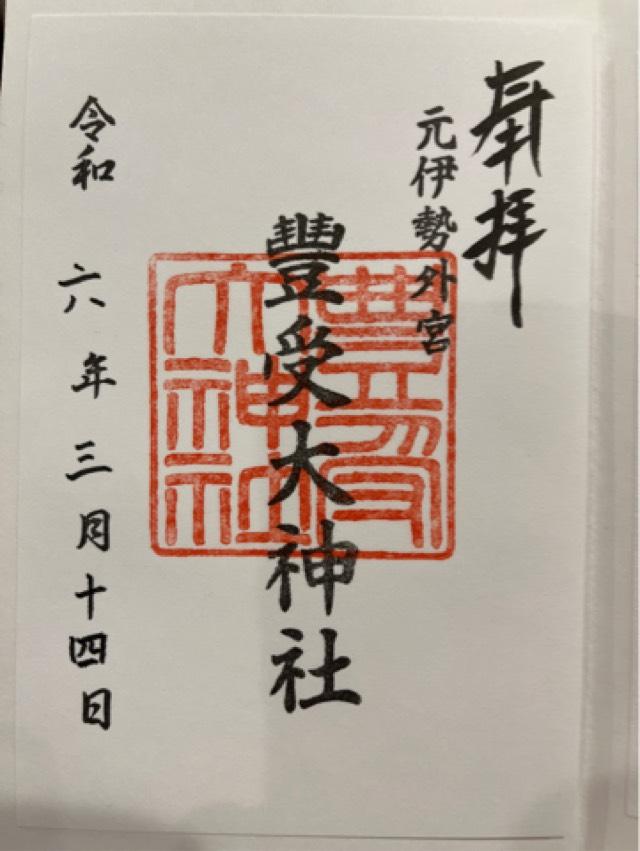 奉拝
元伊勢外宮
豊受大神社
豐受大神社
令和 六年三月十四日